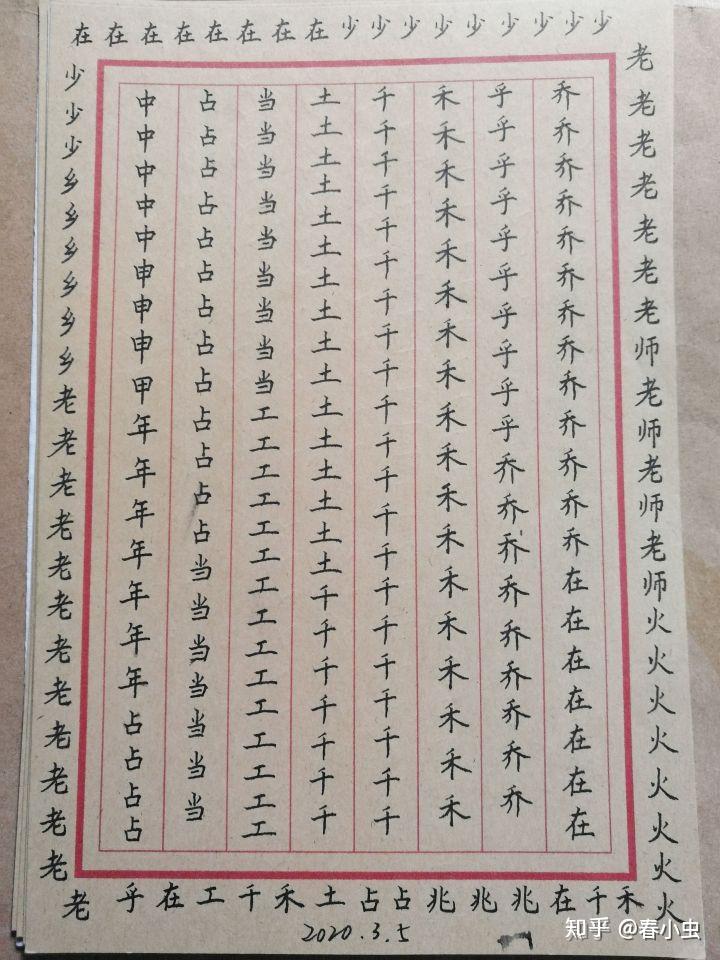 在在在在在在在在少少少少少少少少少
少少少乡乡乡乡乡乡老老老老老老老老老老老老老
中中中中中申申申甲年年年年年年年占占占占
占占占占占占占占占占占占占当当当当当当当
当当当当当当当当当工工工工工工工工工工工工工工工
土土土土土土土土土土土土土土土土千千千千千千千
千千千千千千千千千千千千千千千千千千千千千
禾禾禾禾禾禾禾禾禾禾禾禾禾禾禾禾禾禾
乎乎乎乎乎乎乎乎乎乎乔乔乔乔乔乔乔乔乔
乔乔乔乔乔乔乔乔乔乔乔乔乔在在在在在在在
老老老老老老老师老师老师老师火火火火火火火火
乎在工千禾土占占兆兆兆在千禾
2020.3.5
知乎 @春小虫